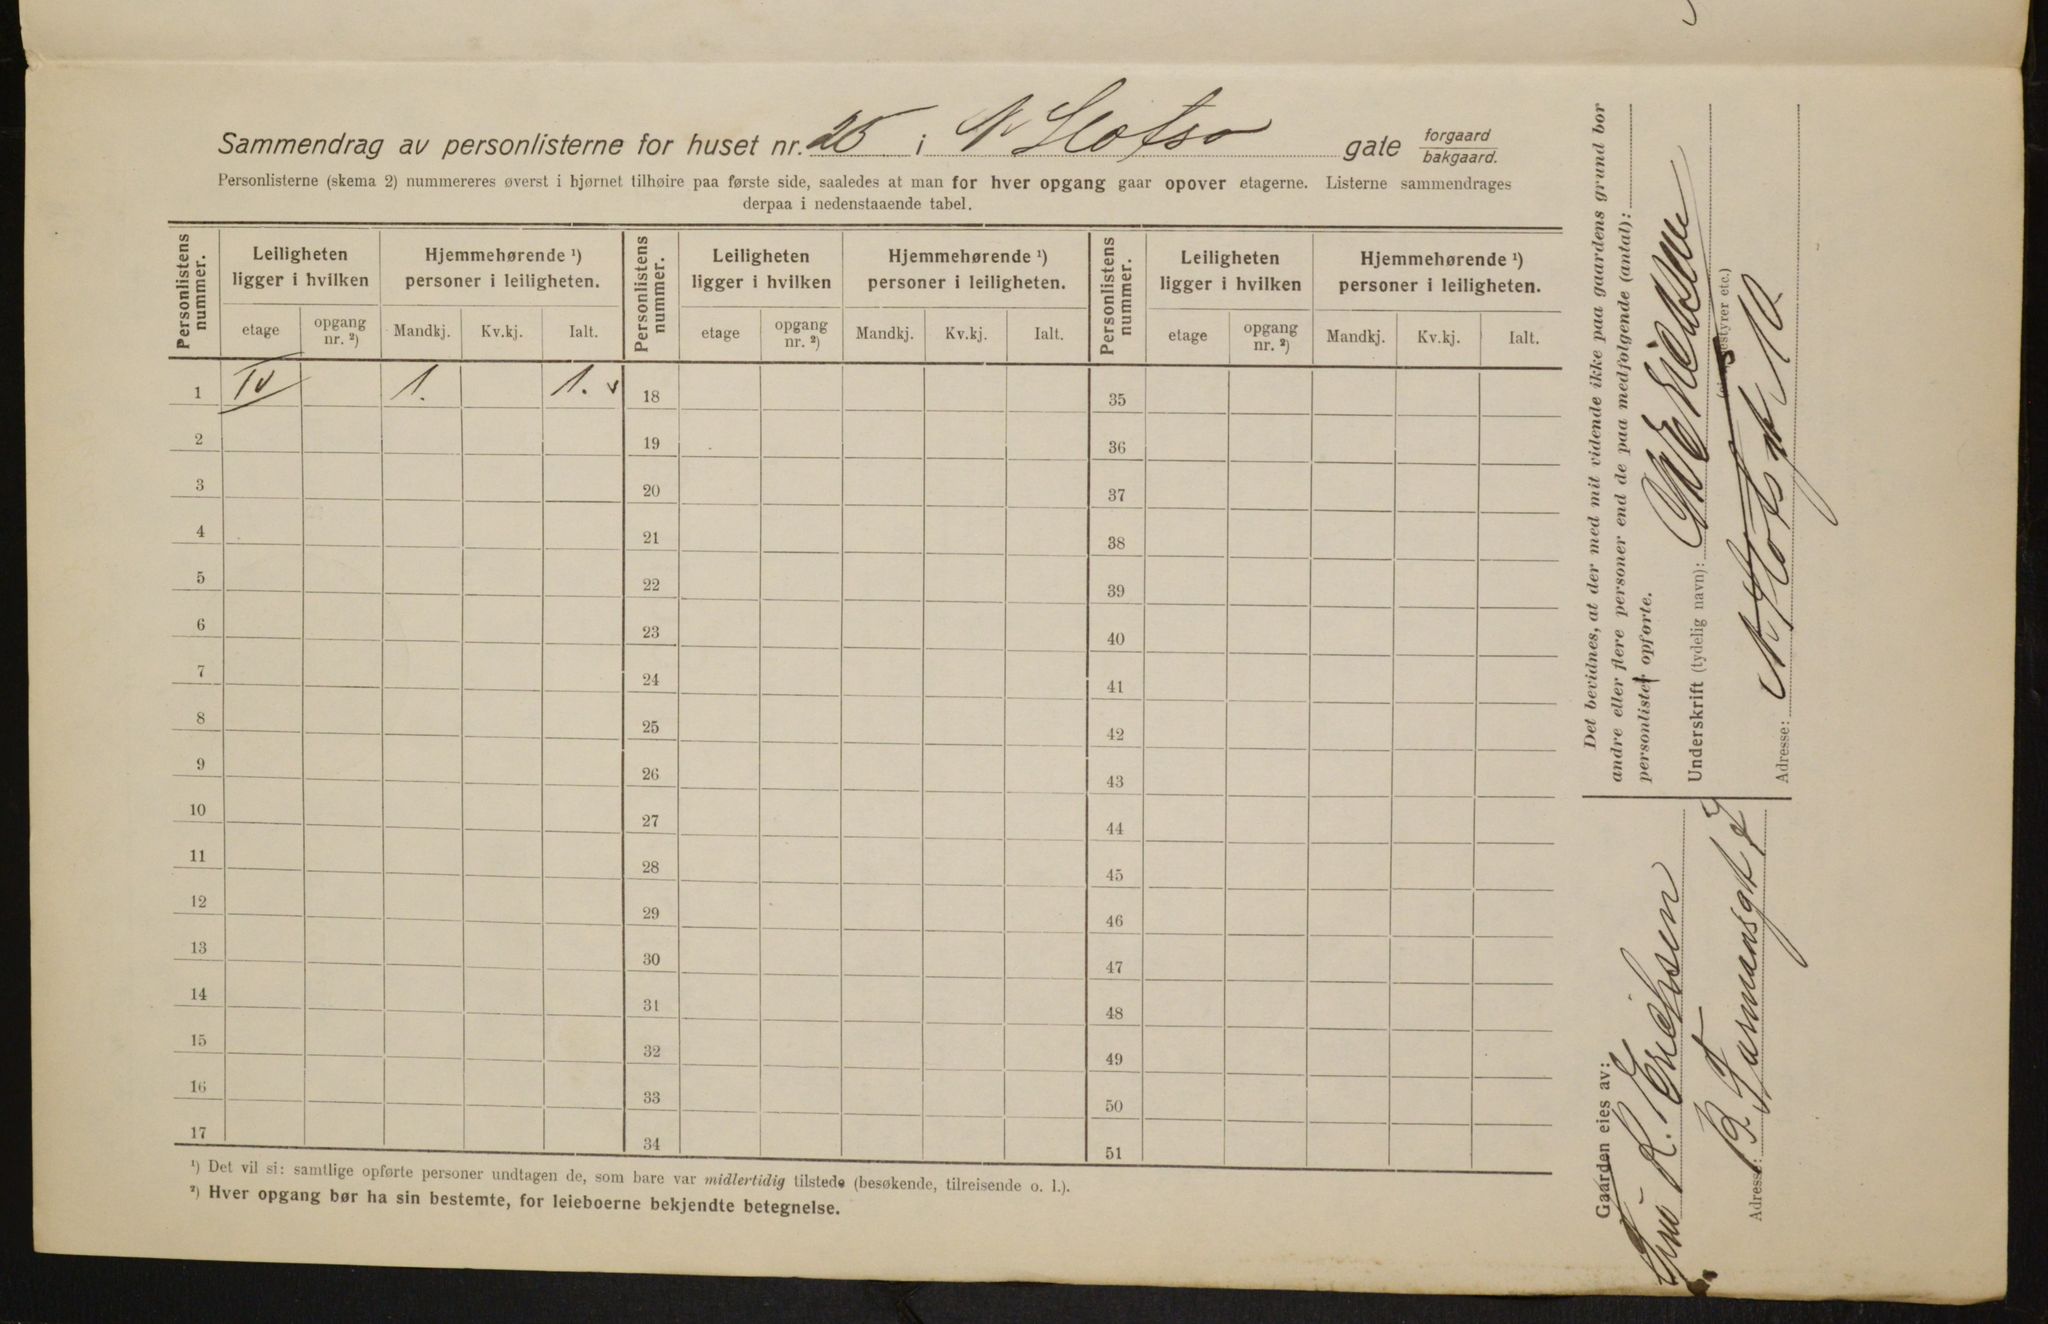 Sammendrag av personlisterne for huset nr. 25 i N Slotss gate forgaard bakgaard.
Personlisterne (skema 2) nummereres øverst i hjørnet tilhøire paa første side, saaledes at man for hver opgang gaar opover etagerne. Listerne sammendrages
derpaa i nedenstaaende tabel.
Personlistens nummer. Leiligheten ligger i hvilken Hjemmehørende ¹) personer i leiligheten. Personlistens nummer. Leiligheten ligger i hvilken Hjemmehørende ¹) personer i leiligheten. Personlistens nummer. Leiligheten ligger i hvilken Hjemmehørende ¹) personer i leiligheten.
etage opgang nr. ²) Mandkj. Kv.kj. Ialt. etage opgang nr. ²) Mandkj. Kv.kj. Ialt. etage opgang nr. ²) Mandkj. Kv.kj. Ialt.
1 IV 1. 1. v 18 35
2 19 36
3 20 37
4 21 38
5 22 39
6 23 40
7 24 41
8 25 42
9 26 43
10 27 44
11 28 45
12 29 46
13 30 47
14 31 48
15 32 49
16 33 50
17 34 51
¹) Det vil si: samtlige opførte personer undtagen de, som bare var midlertidig tilstede (besøkende, tilreisende o. l.).
²) Hver opgang bør ha sin bestemte, for leieboerne bekjendte betegnelse.
Det bevidnes, at der med mit vidende ikke paa gaardens grund bor
andre eller flere personer end de paa medfølgende (antal):
personlister opførte.
Underskrift (tydelig navn): Eriksen
(eier, bestyrer etc.)
Adresse: N Slotsgt 10
Gaarden eies av:
Fru K. Erichsen
Adresse: B. Tormansgt 7